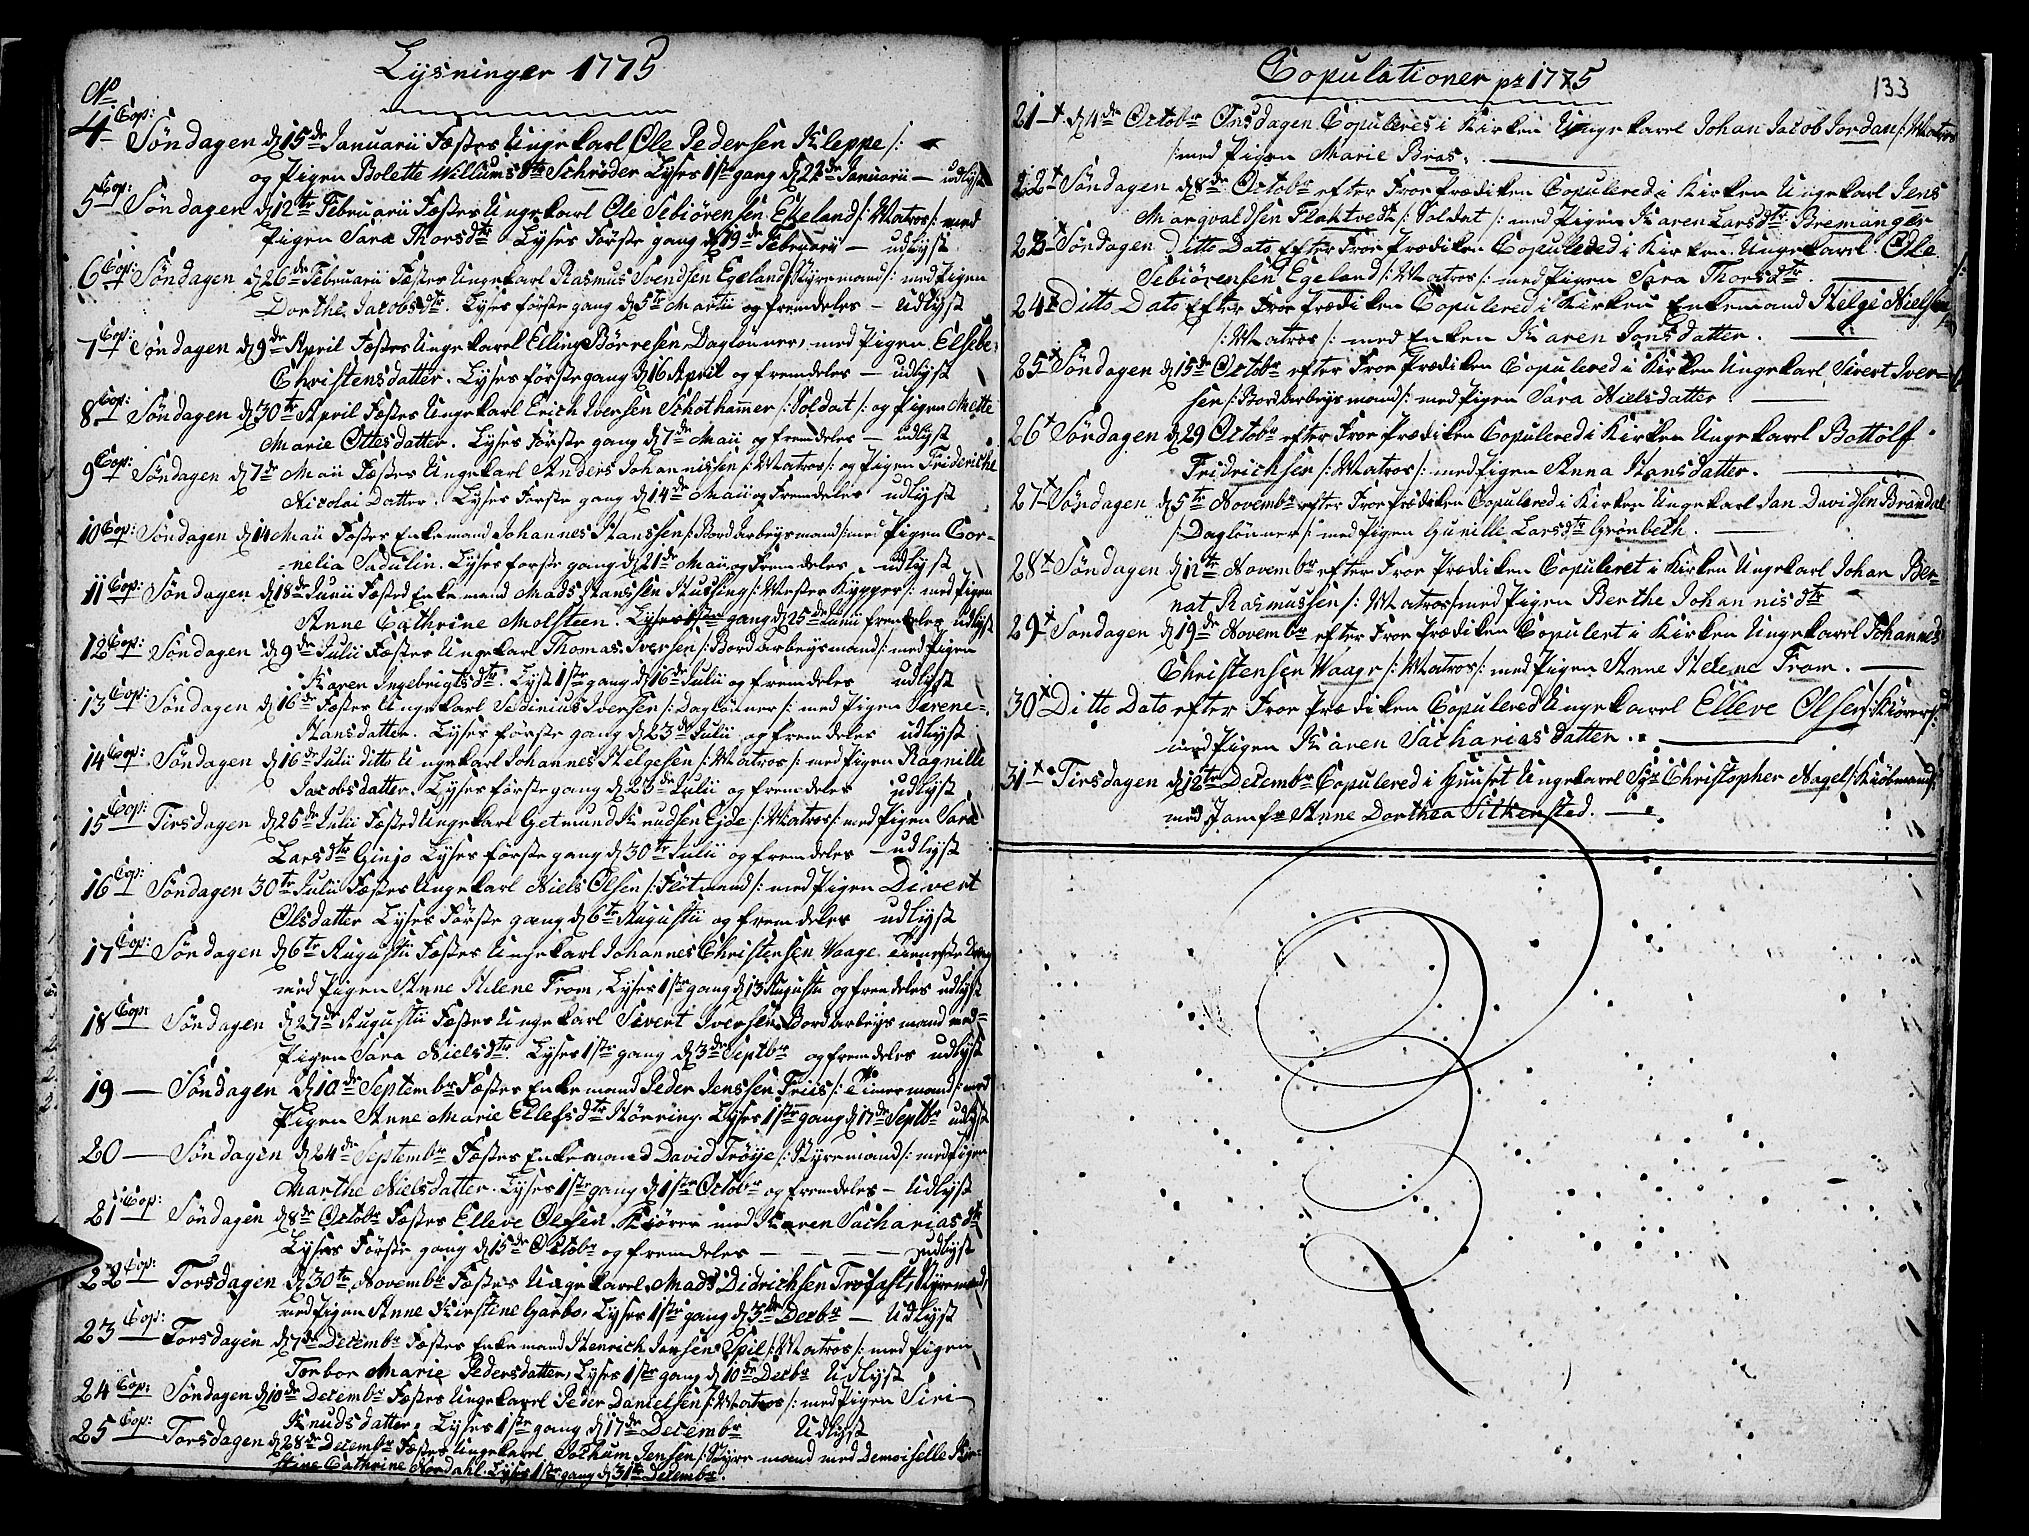 Lysninger 1775
No
4 Cop: Søndagen d 15de Januarii Fæstes Ungekarl Ole Pedersen Kleppe /:
og Pigen Bolette Willumsdtr Schrøder Lyses 1ste gang d 22de Januarii — udlyst
5 Cop: Søndagen d 12te Februarii Fæstes Ungekarl Ole Sebiørensen Egeland /: Matros /: med
Pigen Sara Thorsdtr Lyses Første gang d 19de Februarii — udlyst
6 Cop: Søndagen d 26de Februarii Fæstes Ungekarl Rasmus Svendsen Egeland /: Styremand /: med Pigen
Dorthe Jacobsdtr. Lyses første gang d 5te Martii og fremdeles — Udlyst
7 Cop: Søndagen d 9de April Fæstes Ungekarl Elling Børresen Daglønner, med Pigen Elsebe
Christensdatter. Lyses første gang d 16 April og fremdeles — udlyst
8 Cop: Søndagen d 30te April Fæstes Ungekarl Erich Iversen Schothammer /: Soldat /: og Pigen Mette
Marie Ottesdatter. Lyses Første gang d 7de Maii og fremdeles — udlyst
9 Cop: Søndagen d 7de Maii Fæstes Ungekarl Anders Johannissen /: Matros /: og Pigen Frideriche
Nicolai Datter. Lyses Første gang d 14de Maii og Fremdeles udlyst
10 Cop: Søndagen d 14 Maii Fæstes Enkemand Johannes Hanssen /: Bordarbeysmand /: med Pigen Cor-
nelia Sadulin. Lyses første gang d 21de Maii og Fremdeles udlyst
11 Cop: Søndagen d 18de Junii Fæsted Enkemand Mads Hanssen Hussing /: Mester Kypper /: med Pigen
Anne Cathrine Molsteen. Lyses 1ste gang d 25de Junii fremdeles Udlyst
12 Cop: Søndagen d 9de Julii Fæstes Ungekarl Thomas Iversen /: Bordarbeysmand /: med Pigen
Karen Ingebrigtsdtr. Lyst 1ste gang d 16de Julii og fremdeles udlyst
13 Cop: Søndagen d 16de Fæstes Ungekarl Sedinius Iversen /: Daglønner /: med Pigen Serene
Hansdatter. Lyses første gang d 23de Julii og fremdeles udlyst
14 Cop: Søndagen d 16de Julii ditto Ungekarl Johannes Helgesen /: Matros /: med Pigen Ragnille
Jacobsdatter. Lyses første gang d 23de Julii og fremdeles udlyst
15 Cop: Tirsdagen d 25de Julii Fæsted Ungekarl Getmund Knudsen Eyde /: Matros /: med Pigen Sara
Larsdtr Ginjo Lyses første gang d 30te Julii og fremdeles — udlyst
16 Cop: Søndagen 30te Julii Fæstes Ungekarl Niels Olsen /: Flotmand /: med Pigen Divert
Olsdatter Lyses Første gang d 6te Augustii og fremdeles udlyst
17 Cop: Søndagen d 6te Augustii Fæstes Ungekarl Johannes Christensen Vaage Tieneste Dreng
med Pigen Anne Helene From, Lyses 1ste gang d 13 Augustii og fremdeles udlyst
18 Cop: Søndagen d 27de Augustii Fæstes Ungekarl Sivert Iversen Bordarbeysmand med
Pigen Sara Nielsdtr. Lyses 1ste gang d 3de Septbr og fremdeles udlyst
19 — Søndagen d 10de Septembr Fæstes Enkemand Peder Jenssen Friis /: Timermand /: med
Pigen Anne Marie Ellefsdtr Størring. Lyses 1ste gang d 17de Septbr udlyst
20 — Søndagen d 24de Septembr Fæstes Enkemand David Trøye /: Styremand /: med Pigen
Marthe Nielsdatter. Lyses 1ste gang d 1ste Octobr og fremdeles — Udlyst
21 Cop: Søndagen d 8de Octobr Fæstes Elleve Olsen Kiører med Karen Sachariasdtr
Lyses Første gang d 15de Octobr og fremdeles — — — udlyst
22 Cop: Torsdagen d 30te Novembr Fæstes Ungekarl Mads Didrichsen Trofast, Styremand,
med Pigen Anne Kirstine Garbo, Lyses 1ste gang d 3de Decbr — Udlyst
23 Cop: Torsdagen d 7de Decembr Fæstes Enkemand Henrich Jansen Spil /: Matros /: med Pigen
Torbor Marie Pedersdatter, Lyses 1ste gang d 10de Decbr Udlyst
24 Cop: Søndagen d 10de Decembr Fæstes Ungekarl Peder Danielsen /: Matros /: med Pigen Siri
Knudsdatter, Lyses 1ste gang d 17de Decembr Udlyst
25 Cop: Torsdagen d 28de Decembr Fæstes Ungekarl Jochum Jensen /: Styrmand med Demoiselle Kir-
stine Cathrine Nordahl. Lyses 1ste gang d 31te Decembr.
Copulationer pr 1775
133
21 + d 4de Octobr Onsdagen Copuleres i Kirken Ungekarl Johan Jacob Jordan /: Matros
/: med Pigen Marie Bras.
22 + Søndagen d 8de Octobr efter Froe Prædiken Copulered i Kirken Ungekarl Jens
Marqvaldsen Flaktvedt /: Soldat /: med Pigen Karen Larsdtr Bremanger
23 + Søndagen Ditto Dato Efter Froe Prædiken Copulered i Kirken Ungekarl Ole
Sebiørensen Egeland /: Matros /: med Pigen Sara Thorsdtr.
24 + Ditto Dato Efter Froe Prædiken Copulered i Kirken Enkemand Helge Nielsen
/: Matros /: med Enken Karen Jonsdatter.
25 + Søndagen d 15de Octobr efter Froe Prædiken Copulered i Kirken Ungekarl Sivert Iver-
sen /: Bordarbeysmand /: med Pigen Sara Nielsdatter
26 + Søndagen d 29 Octobr efter Froe Prædiken Copulered i Kirken Ungekarl Bottolf
Fridrichsen /: Matros /: med Pigen Anna Hansdatter.
27 + Søndagen d 5te Novembr efter Froe Prædiken Copulered i Kirken Ungekarl Jan Davidsen Brandal
/: Daglønner /: med Pigen Gunille Larsdtr Grønbech.
28 + Søndagen d 12te Novembr efter Froe Prædiken Copuleret i Kirken Ungekarl Johan Ber-
nat Rasmussen /: Matros /: med Pigen Berthe Johannisdtr
29 + Søndagen d 19de Novembr efter Froe Prædiken Copulert i Kirken Ungekarl Johannes
Christensen Vaage /: Matros /: med Pigen Anne Helene From.
30 + Ditto Dato efter Froe Prædiken Copulered Ungekarl Elleve Olsen /: Kiører /:
med Pigen Karen Sachariasdatter.
31 + Tirsdagen d 12te Decembr Copulered i Huuset Ungekarl Sr Christopher Nagel /: Kiøbmand /:
med Jomfr Anne Dorthea Silkensted.